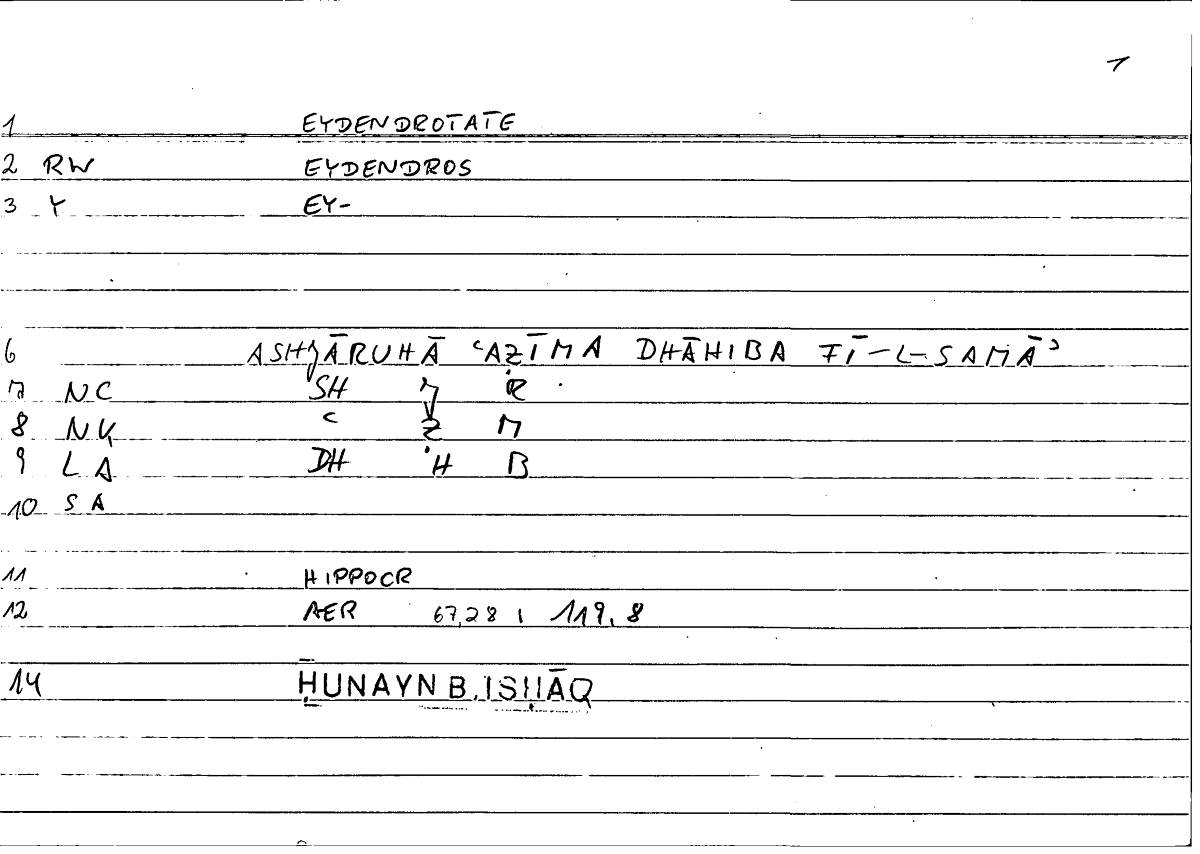 1
1 EYDENDROTATE
2 RW EYDENDROS
3 Y EY-
6 ASHJĀRUHĀ ʿAẒĪMA DHĀHIBA FĪ-L-SAMĀʾ
7 NC SH J R
8 NK ʿ Ẓ M
9 LA DH H B
10 SA
11 HIPPOCR
12 AER 67,28 ; 119,8
14 ḤUNAYN B. ISḤĀQ